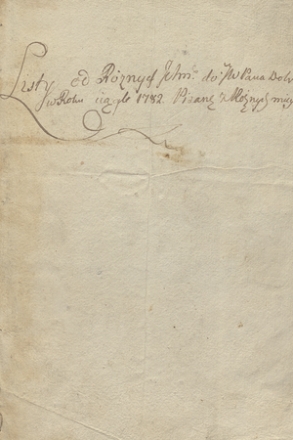 Listy od Różnych Ichm: do JW Pana Dob
w Roku ciągło 1782. Pisane z Różnych